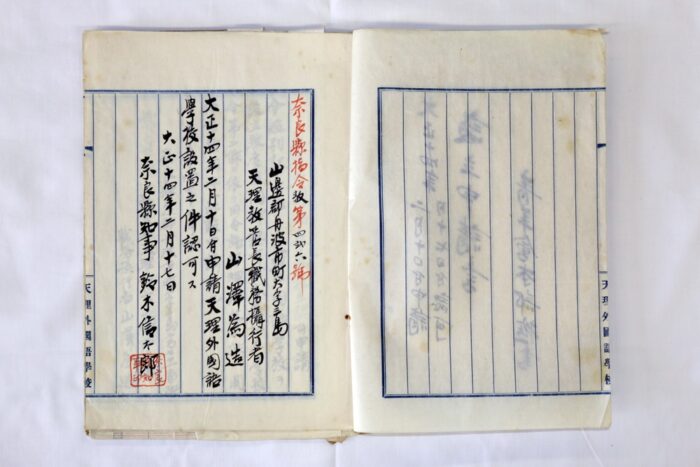 奈良縣指令教第四弐六號
山邊郡丹波市町大字三島
天理教管長職務攝行者
山澤為造
大正十四年二月十日付申請天理外國語
學校設置之件認可ス
大正十四年二月十七日
奈良縣知事 鈴木信太郎
天理外國語學校
天理外國語學校